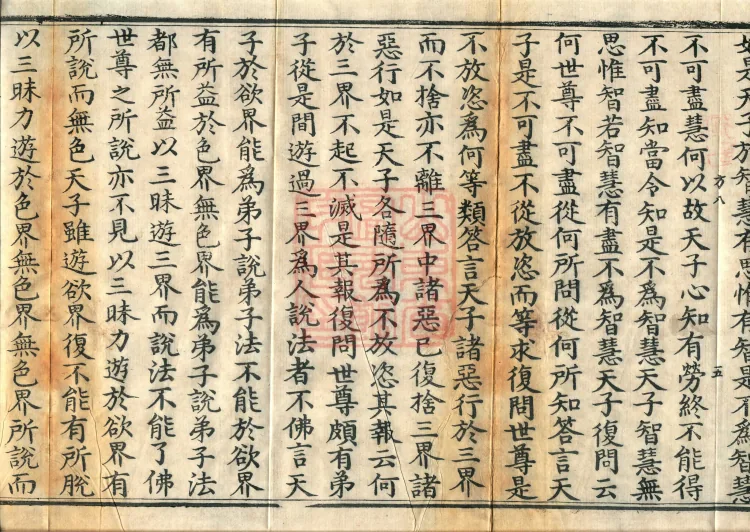 如是天子於智慧有思惟有智是不爲智慧
方八
五
不可盡慧何以故天子心知有勞終不能得
不可盡知當令知是不爲智慧天子智慧無
思惟智若智慧有盡不爲智慧天子復問云
何世尊不可盡從何所問從何所知答言天
子是不可盡不從放恣而等求復問世尊是
不放恣爲何等類答言天子諸惡行於三界
而不捨亦不離三界中諸惡已復捨三界諸
惡行如是天子各隨所爲不放恣其報云何
於三界不起不滅是其報復問世尊頗有弟
子從是間遊過三界爲人說法者不佛言天
子於欲界能爲弟子說弟子法不能於欲界
有所益於色界無色界能爲弟子說弟子法
都無所益以三昧遊三界而說法不能了佛
世尊之所說亦不見以三昧力遊於欲界有
所說而無色天子雖遊欲界復不能有所脫
以三昧力遊於色界無色界無色界所說而